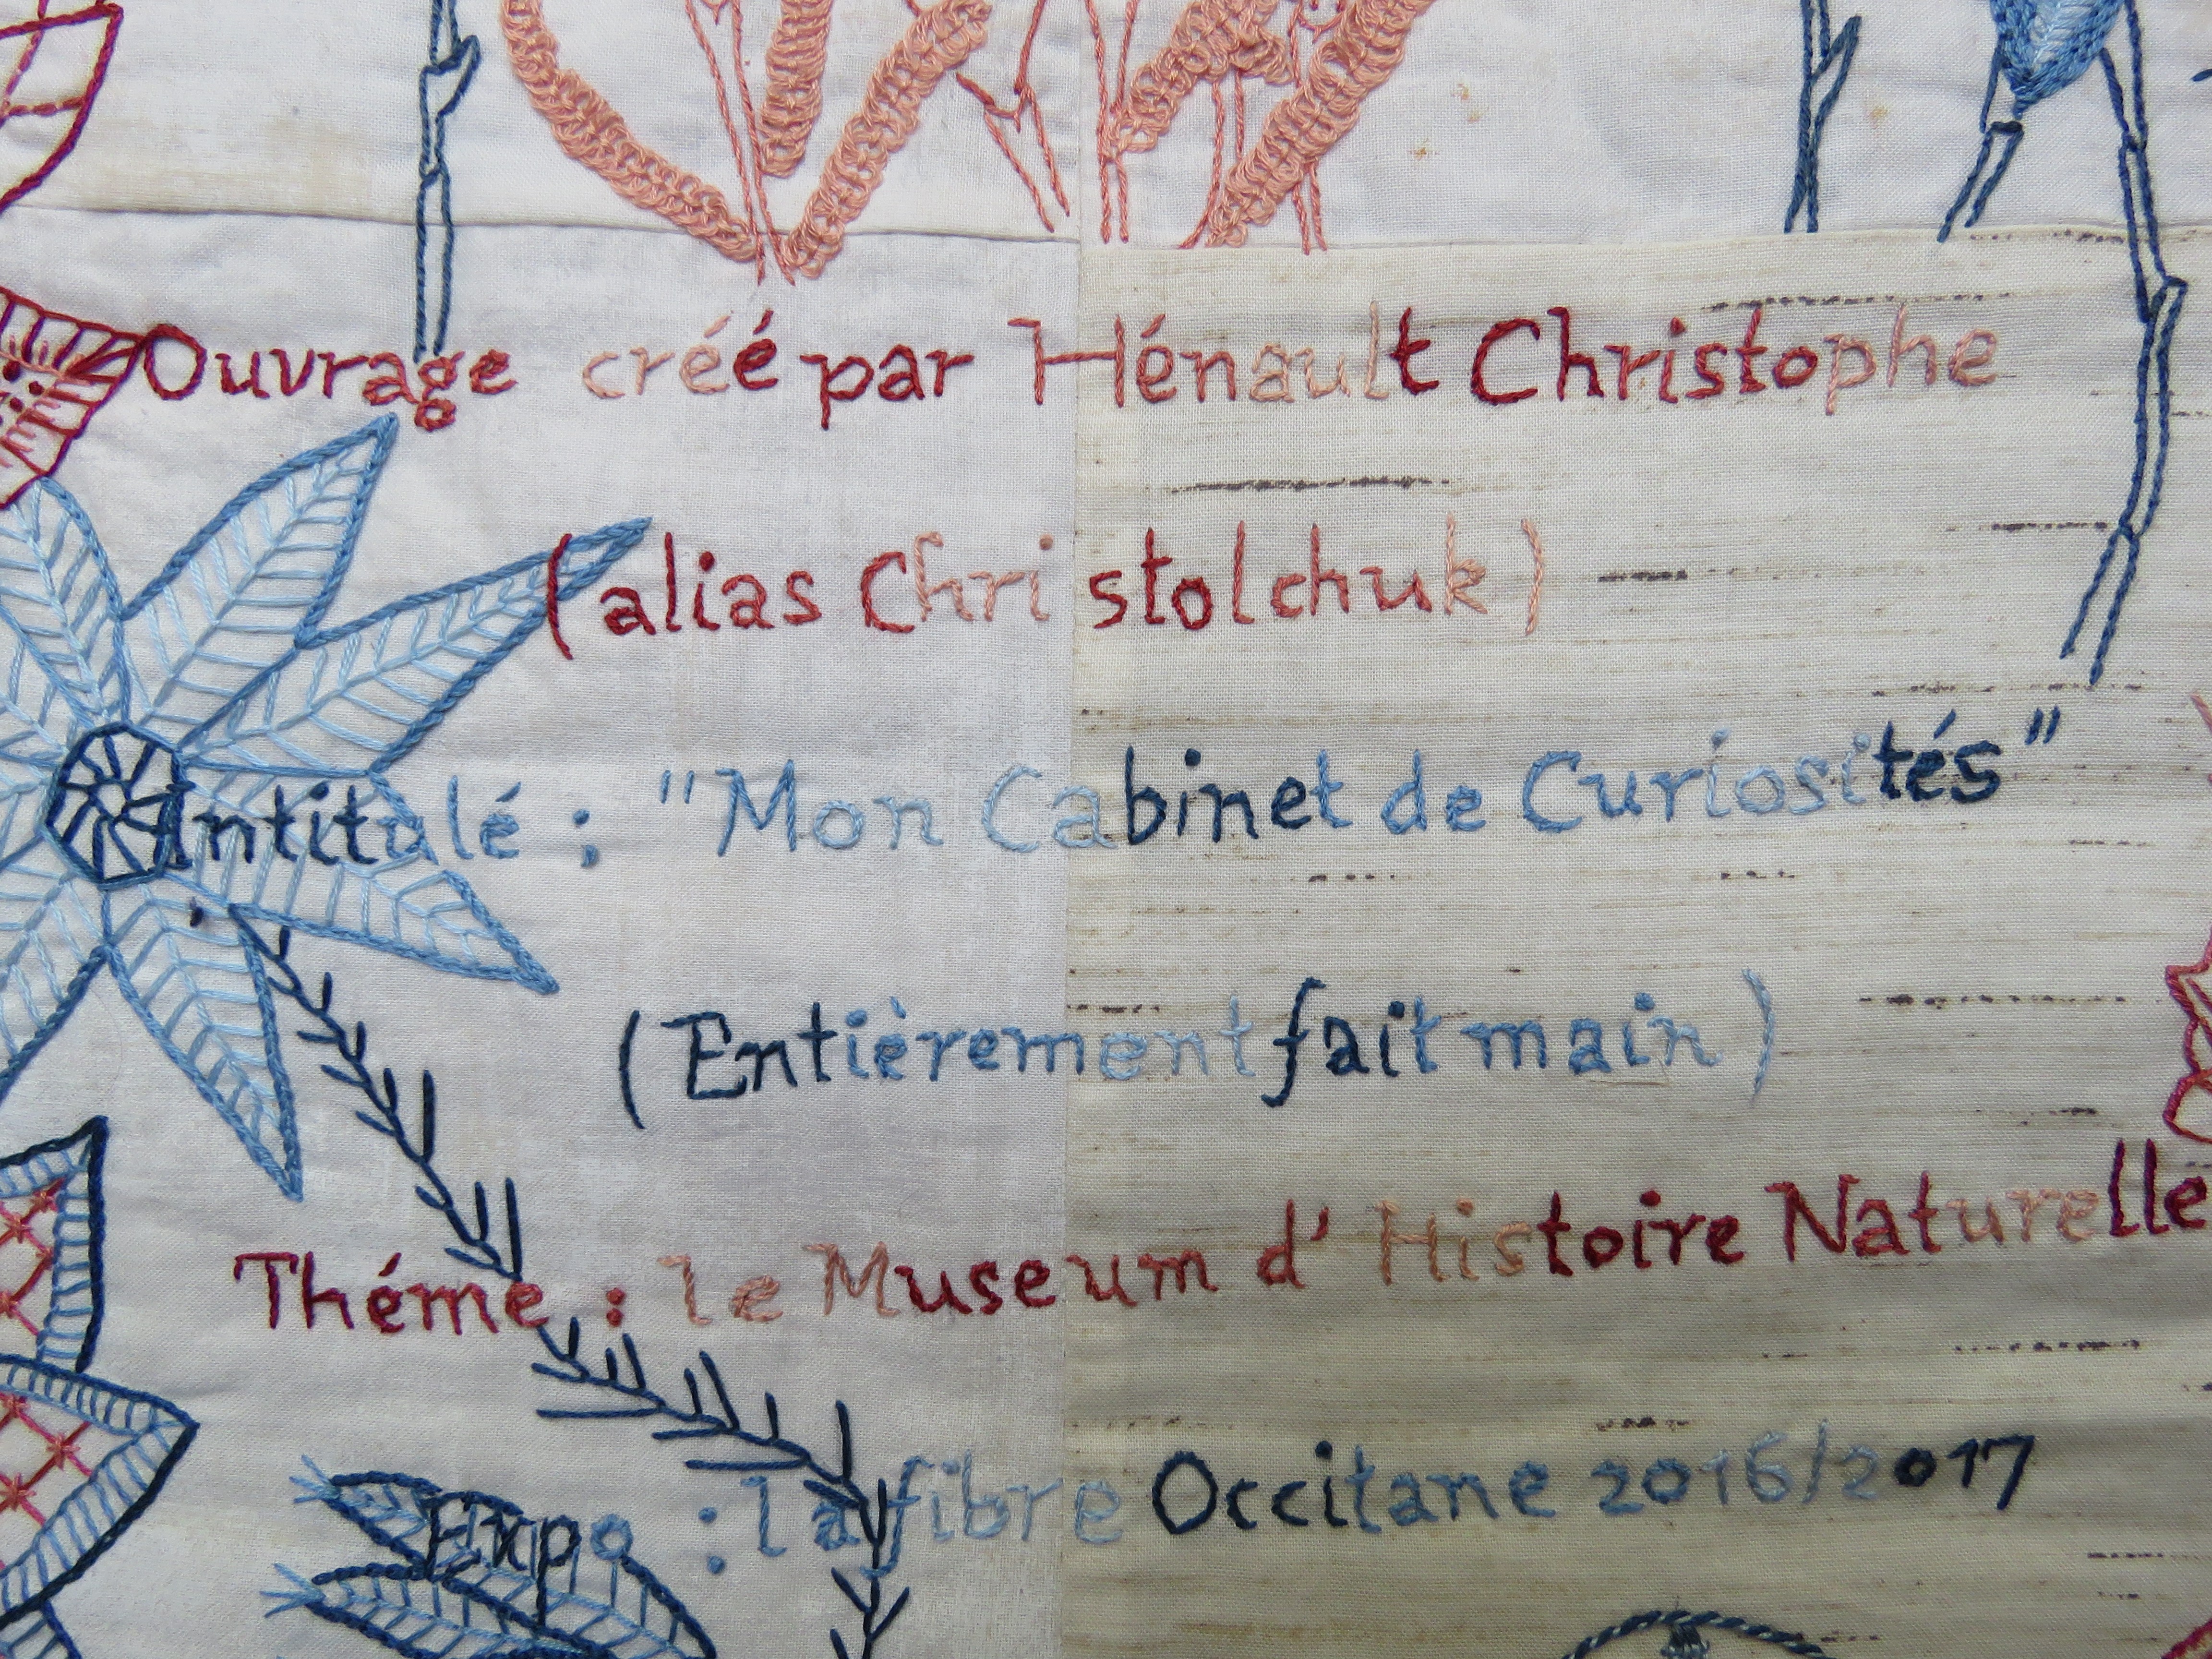 Ouvrage créé par Hénault Christophe
(alias Christolchuk)
Intitulé : "Mon Cabinet de Curiosités"
(Entièrement fait main)
Théme : le Museum d'Histoire Naturelle
Expo : la fibre Occitane 2016/2017